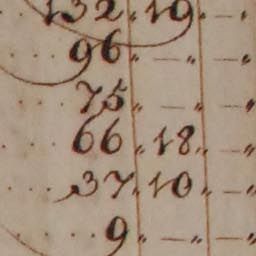 132 „ 10 „ — „
96 „ — „ — „
75 „ — „ — „
66 „ 18 „ — „
37 „ 10 „ — „
9 „ — „ — „